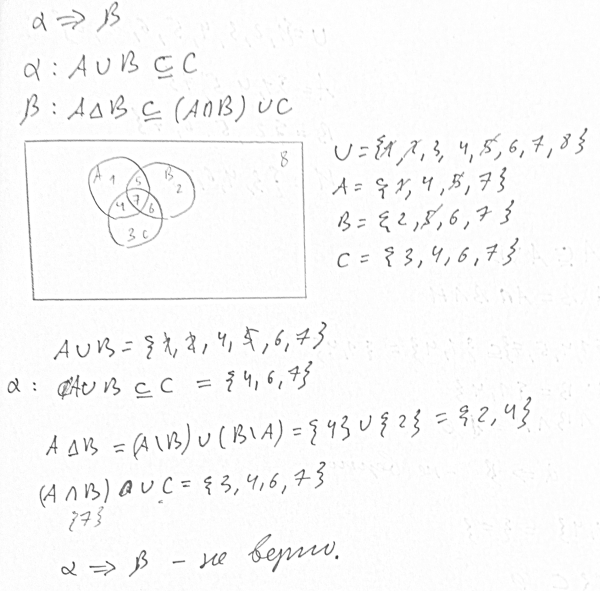 α ⇒ β
α : A∪B ⊆ C
β : A∆B ⊆ (A∩B) ∪C
A 1 5 B 2 8
4 7 6
3 C
U = {1, 2, 3, 4, 5, 6, 7, 8}
A = {1, 4, 5, 7}
B = {2, 5, 6, 7}
C = {3, 4, 6, 7}
A∪B = {1, 2, 4, 5, 6, 7}
α : A∪B ⊆ C = {4, 6, 7}
A∆B = (A\B) ∪ (B\A) = {4} ∪ {2} = {2, 4}
(A∩B) ∪ C = {3, 4, 6, 7}
{7}
α ⇒ β – не верно.